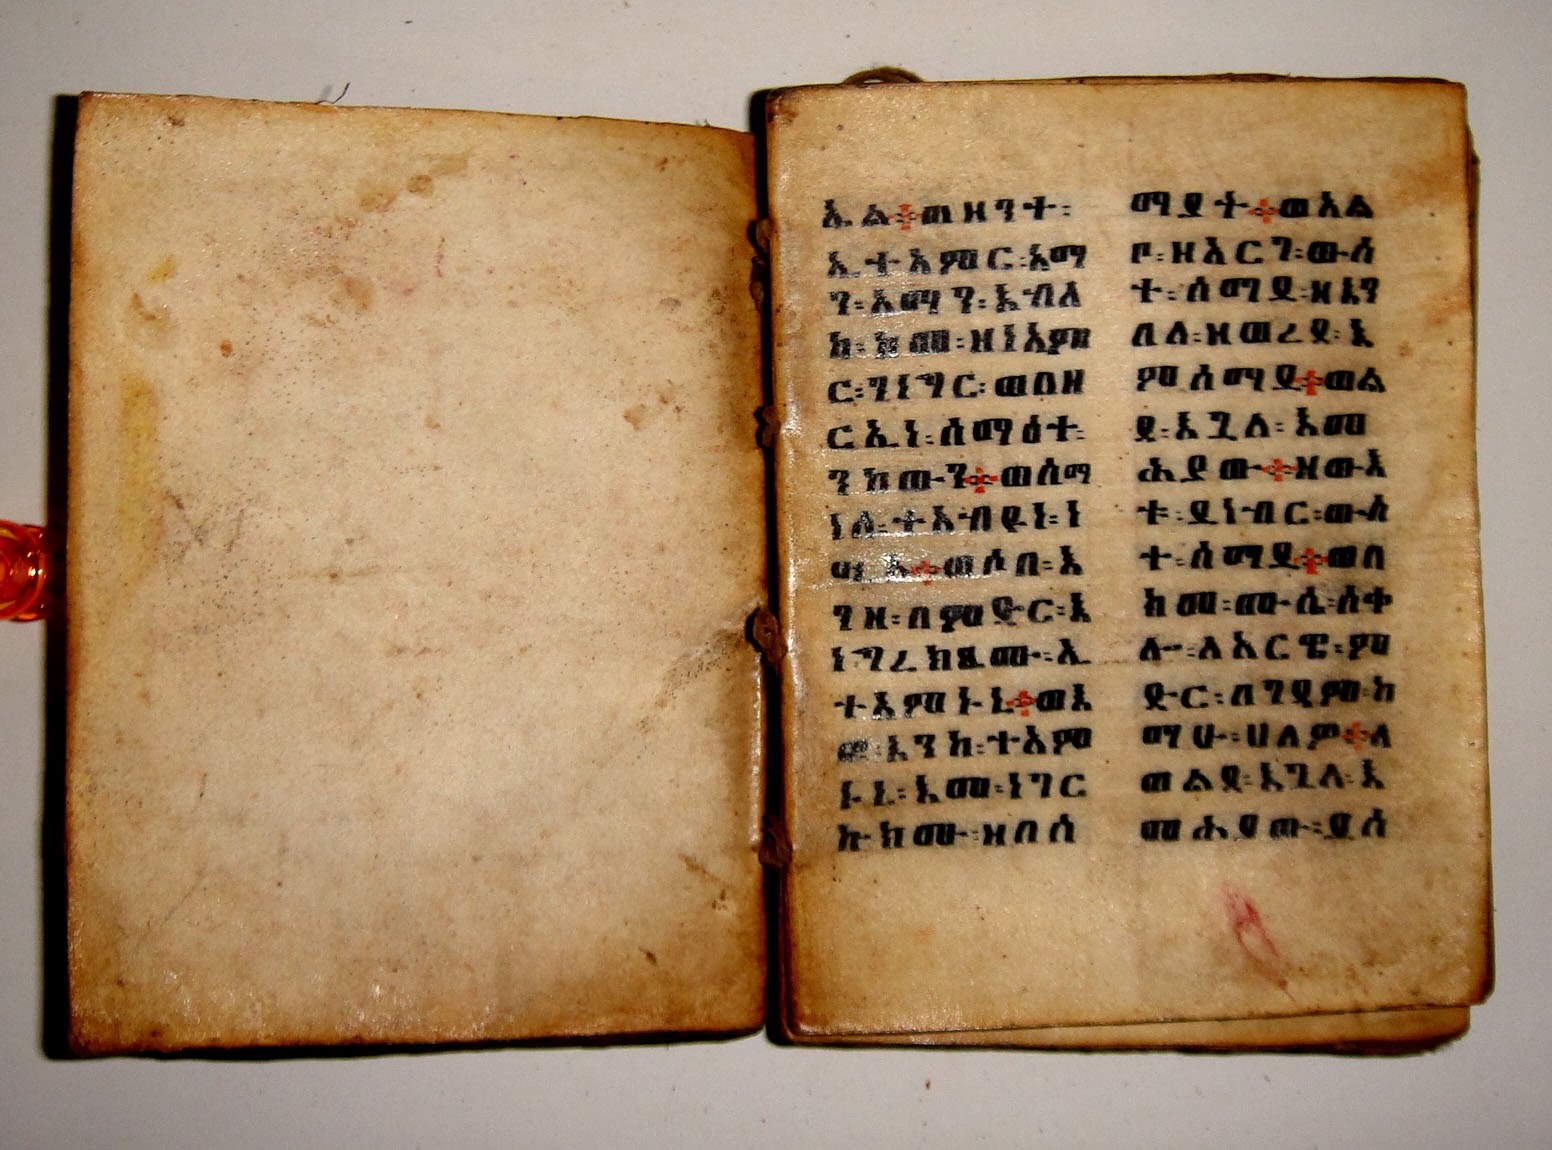 ኤል፨ወዘንተ፡
ኢተአምር፡አማ
ን፡አማን፡እብለ
ከ፡ከመ፡ዘነአም
ር፡ንነግር፡ወበዘ
ርኢነ፡ሰማዕተ፡
ንከውን፨ወሰማ
ነሰ፡ተአብዩ፡ነ
ወሶበ፡እ
ንዘ፡በምድር፡እ
ነግረክሙ፡ኢ
ተአምኑኒ፨ወእ
ፎ፡እንከ፡ተአም
ኑኒ፡እመ፡ነገር
ኩክሙ፡ዘበሰ
ማያት፨ወአል
ቦ፡ዘአርገ፡ውስ
ተ፡ሰማይ፡ዘእን
በለ፡ዘወረደ፡እ
ምሰማይ፨ወል
ደ፡እጓለ፡እመ
ሕያው፨ዘውእ
ቱ፡ይነብር፡ውስ
ተ፡ሰማይ፨ወበ
ከመ፡ሙሴ፡ሰቀ
ሎ፡ለአርዌ፡ም
ድር፡በገዳም፡ከ
ማሁ፡ሀለዎ፨ለ
ወልደ፡እጓለ፡እ
መሕያው፡ይሰ